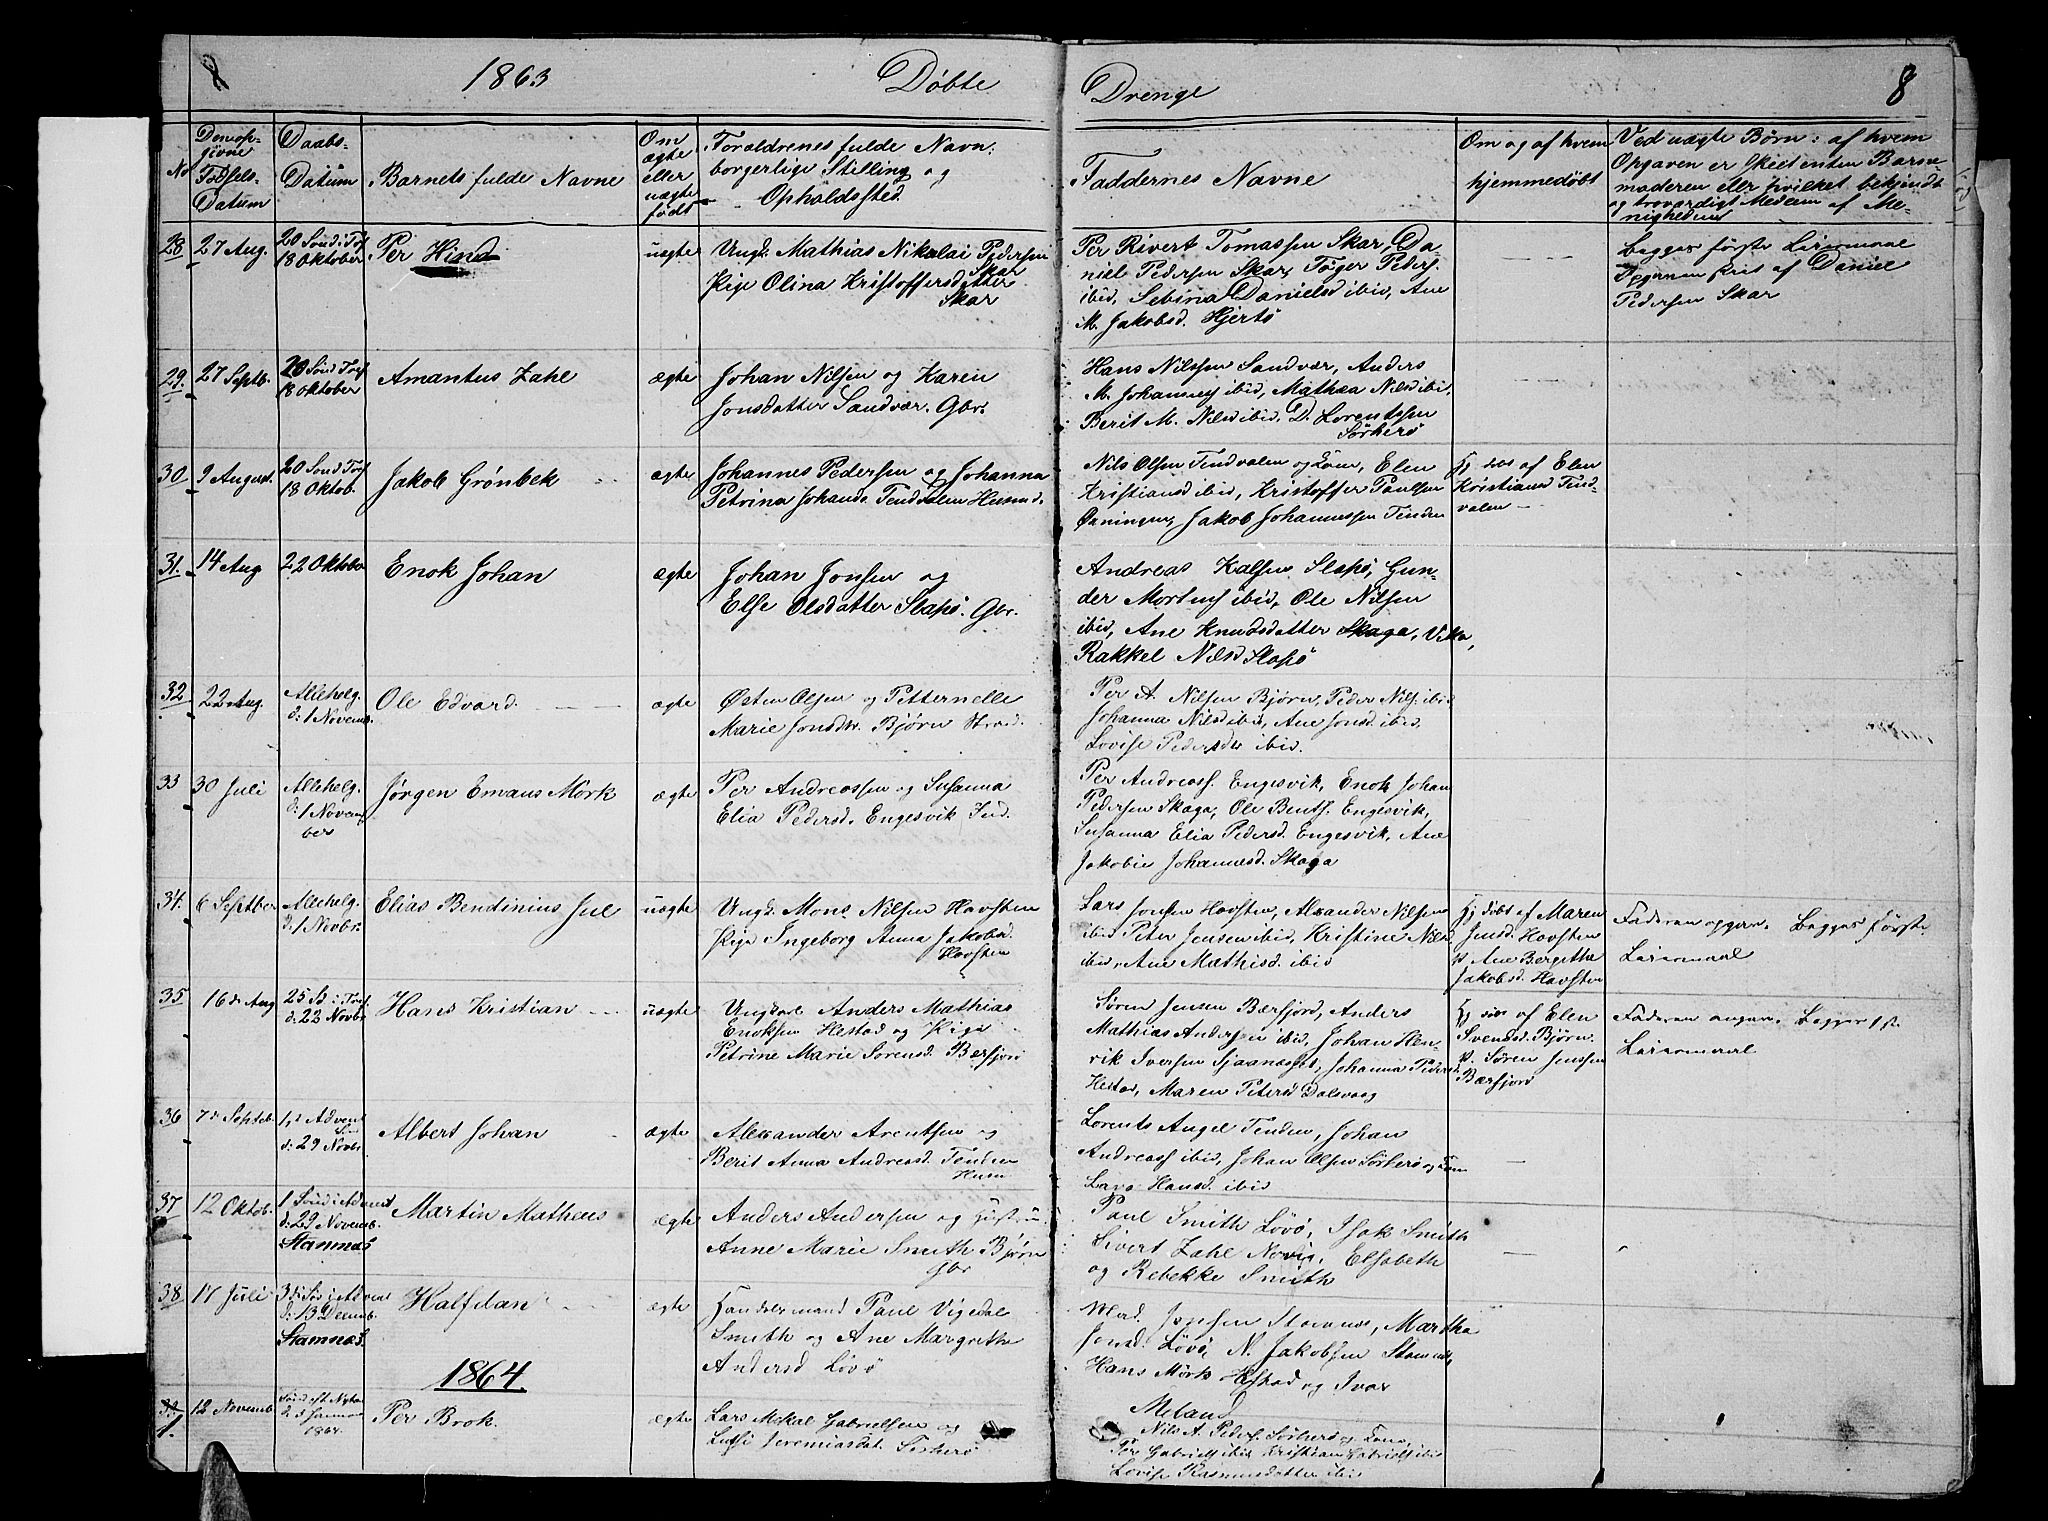 8 1863 Döbte Drenge 8
No
Den opgivne Födsels-Datum
Daabs-Datum
Barnets fulde Navne
Om ægte eller uægte födt
Foraldrenes fulde Navn: borgerlige Stilling og Opholdssted.
Faddernes Navne
Om og af hvem hjemmedöbt
Ved uægte Børn: af hvem
Opgaven er skeet enten Barne-
moderen eller hvilket bekjendt
og troværdigt Medlem af Me-
nigheden
28 27 Aug. 20 Sönd: Tref 18 Oktober
Per Hind
uægte
Ungk. Mathias Nikolai Pedersen Skar
Pige Olina Kristoffersdatter
Skar
Per Sivert Tomassen Skar, Da-
niel Pedersen Skar, Töger Peders.
ibid, Sebina Danielsd ibid, Ane
M. Jakobsd. Hjertö
Begges förste Leiermaal
Opgaven skeet af Daniel
Pedersen Skar
29. 27 Septb. 20 Sönd Tref 18 Oktober
Amantus Zahl
ægte
Johan Nilsen og Karen
Jonsdatter Sandvær. Gbr.
Hans Nilssen Sandvær, Anders
M. Johannes ibid, Mathea Nilsd ibid,
Berit M. Nilsd ibid, D. Lorentssen
Sörherö
30 9 August. 20 Sönd Tref 18 Oktob.
Jakob Grönbek
ægte
Johannes Pedersen og Johanna
Petrina Johansd. Tendvalen Husmd.
Nils Olsen Tindvalen og Kone, Elen
Kristiansd ibid, Kristoffer Paulsen
Øxningen, Jakob Johannessen Tinden
Hj döbt af Elen
Kristiansd Tind-
valen
31. 14 Aug 22 Oktober
Enok Johan
ægte
Johan Jonsen og
Else Olsdatter Slapö. Gbr.
Andreas Kalsen Slapö, Gun-
der Mortens ibid, Ole Nilsen
ibid, Ane Knudsdatter Skaga,
Rakkel Nilsd Slapö
32 22 Aug. Allehelg. d: 1 Novemb.
Ole Edvard
ægte
Østen Olsen og Petternelle
Marie Jonsdtr. Björn
Per A. Nilsen Björn, Peder Nils. ibid
Johanna Nilsd ibid, Ane Jonsd. ibid,
Lovise Pedersdtr ibid.
33 30 Juli Allehelg. d: 1 Novem-
ber
Jörgen Emaus Mörk
ægte
Per Andreassen og Susanna
Elia Pedersd. Engesvik Ind.
Per Andreass. Engesvik, Enok Johan
Pedersen Skaga, Ole Bents. Engesvik,
Susanna Elia Pedersd. Engesvik, Ane
Jakobie Johannesd. Skaga
34. 6 Septber Allehelg. d: 1 Novbr.
Elias Bendinius Jul
uægte
Ungk. Mons Nilsen Havsten
Pige Ingeborg Anna Jakobsd.
Havsten
Lars Jonsen Havsten, Alexander Nilsen
ibid Peter Jensen ibid, Kristine Nilsd
ibid, Ane Mathisd. ibid
Hj döbt af Maren
Jensd. Havsten
st. Ane Bergitha
Jakobsd. Havsten
Faderen opgav. Begges förste
Leiermaal
35 16 de Aug 25 Sd: Tref. d: 22 Novbr.
Hans Kristian
uægte
Ungkarl Anders Mathias
Enoksen Hestad og Pige
Petrine Marie Sörensd. Bærfjord
Sören Jensen Bærfjord, Anders
Mathias Andersen ibid, Johan Hen-
rik Iversen Sjaanesset, Johanna Pedersd
Hestad, Maren Petersd Dalsvaag
Hj döbt af Elen
Svendsd. Björn.
st. Sören Jensen
Bærfjord
Faderen angav. Begges 1st.
Leiermaal
36 7 de Septeb. 1ste Advent
d: 29 Novbr.
Albert Johan
ægte
Alexander Arentsen og
Berit Anna Andreasd. Tenden
Husm
Lorents Angel Tenden, Johan
Andreass ibid, Johan Olsen Sörherö og Kone
Lava Hansd. ibid
37 12 Oktob. 1 Sönd i Advent
d: 29 Novemb.
Stamnæs
Martin Matheus
ægte
Anders Andersen og Hustru
Anne Marie Smith Björn
Gbr
Paul Smith Lövö, Isak Smith
Sivert Zahl Novig, Elsabeth
og Rebekke Smith
38 17 Juli 3die Sö: i Advent
d: 13 Decemb.
Stamnæs.
Halfdan
ægte
Handelsmand Paul Vigedal
Smith og Ane Margrethe
Andersd Lövö
Mad. Jensen Stamnes, Martha
Jonsd. Lövö, N. Jakobsen Stamnes,
Hans Mörk Hestad og Ivar
Meland
1864
39
1. 12 Novemb Sönd eft Nytaar
d. 3 Januar
1864.
Per Brok.
ægte
Lars Mekal Gabrielsen og
Lussi Jeremiasdat. Sörherö
Nils A. Peders. Sörherö og Kone,
Per Gabriels ibid Kristian Gabriels ibid
Lovise Rasmusdatter ibid